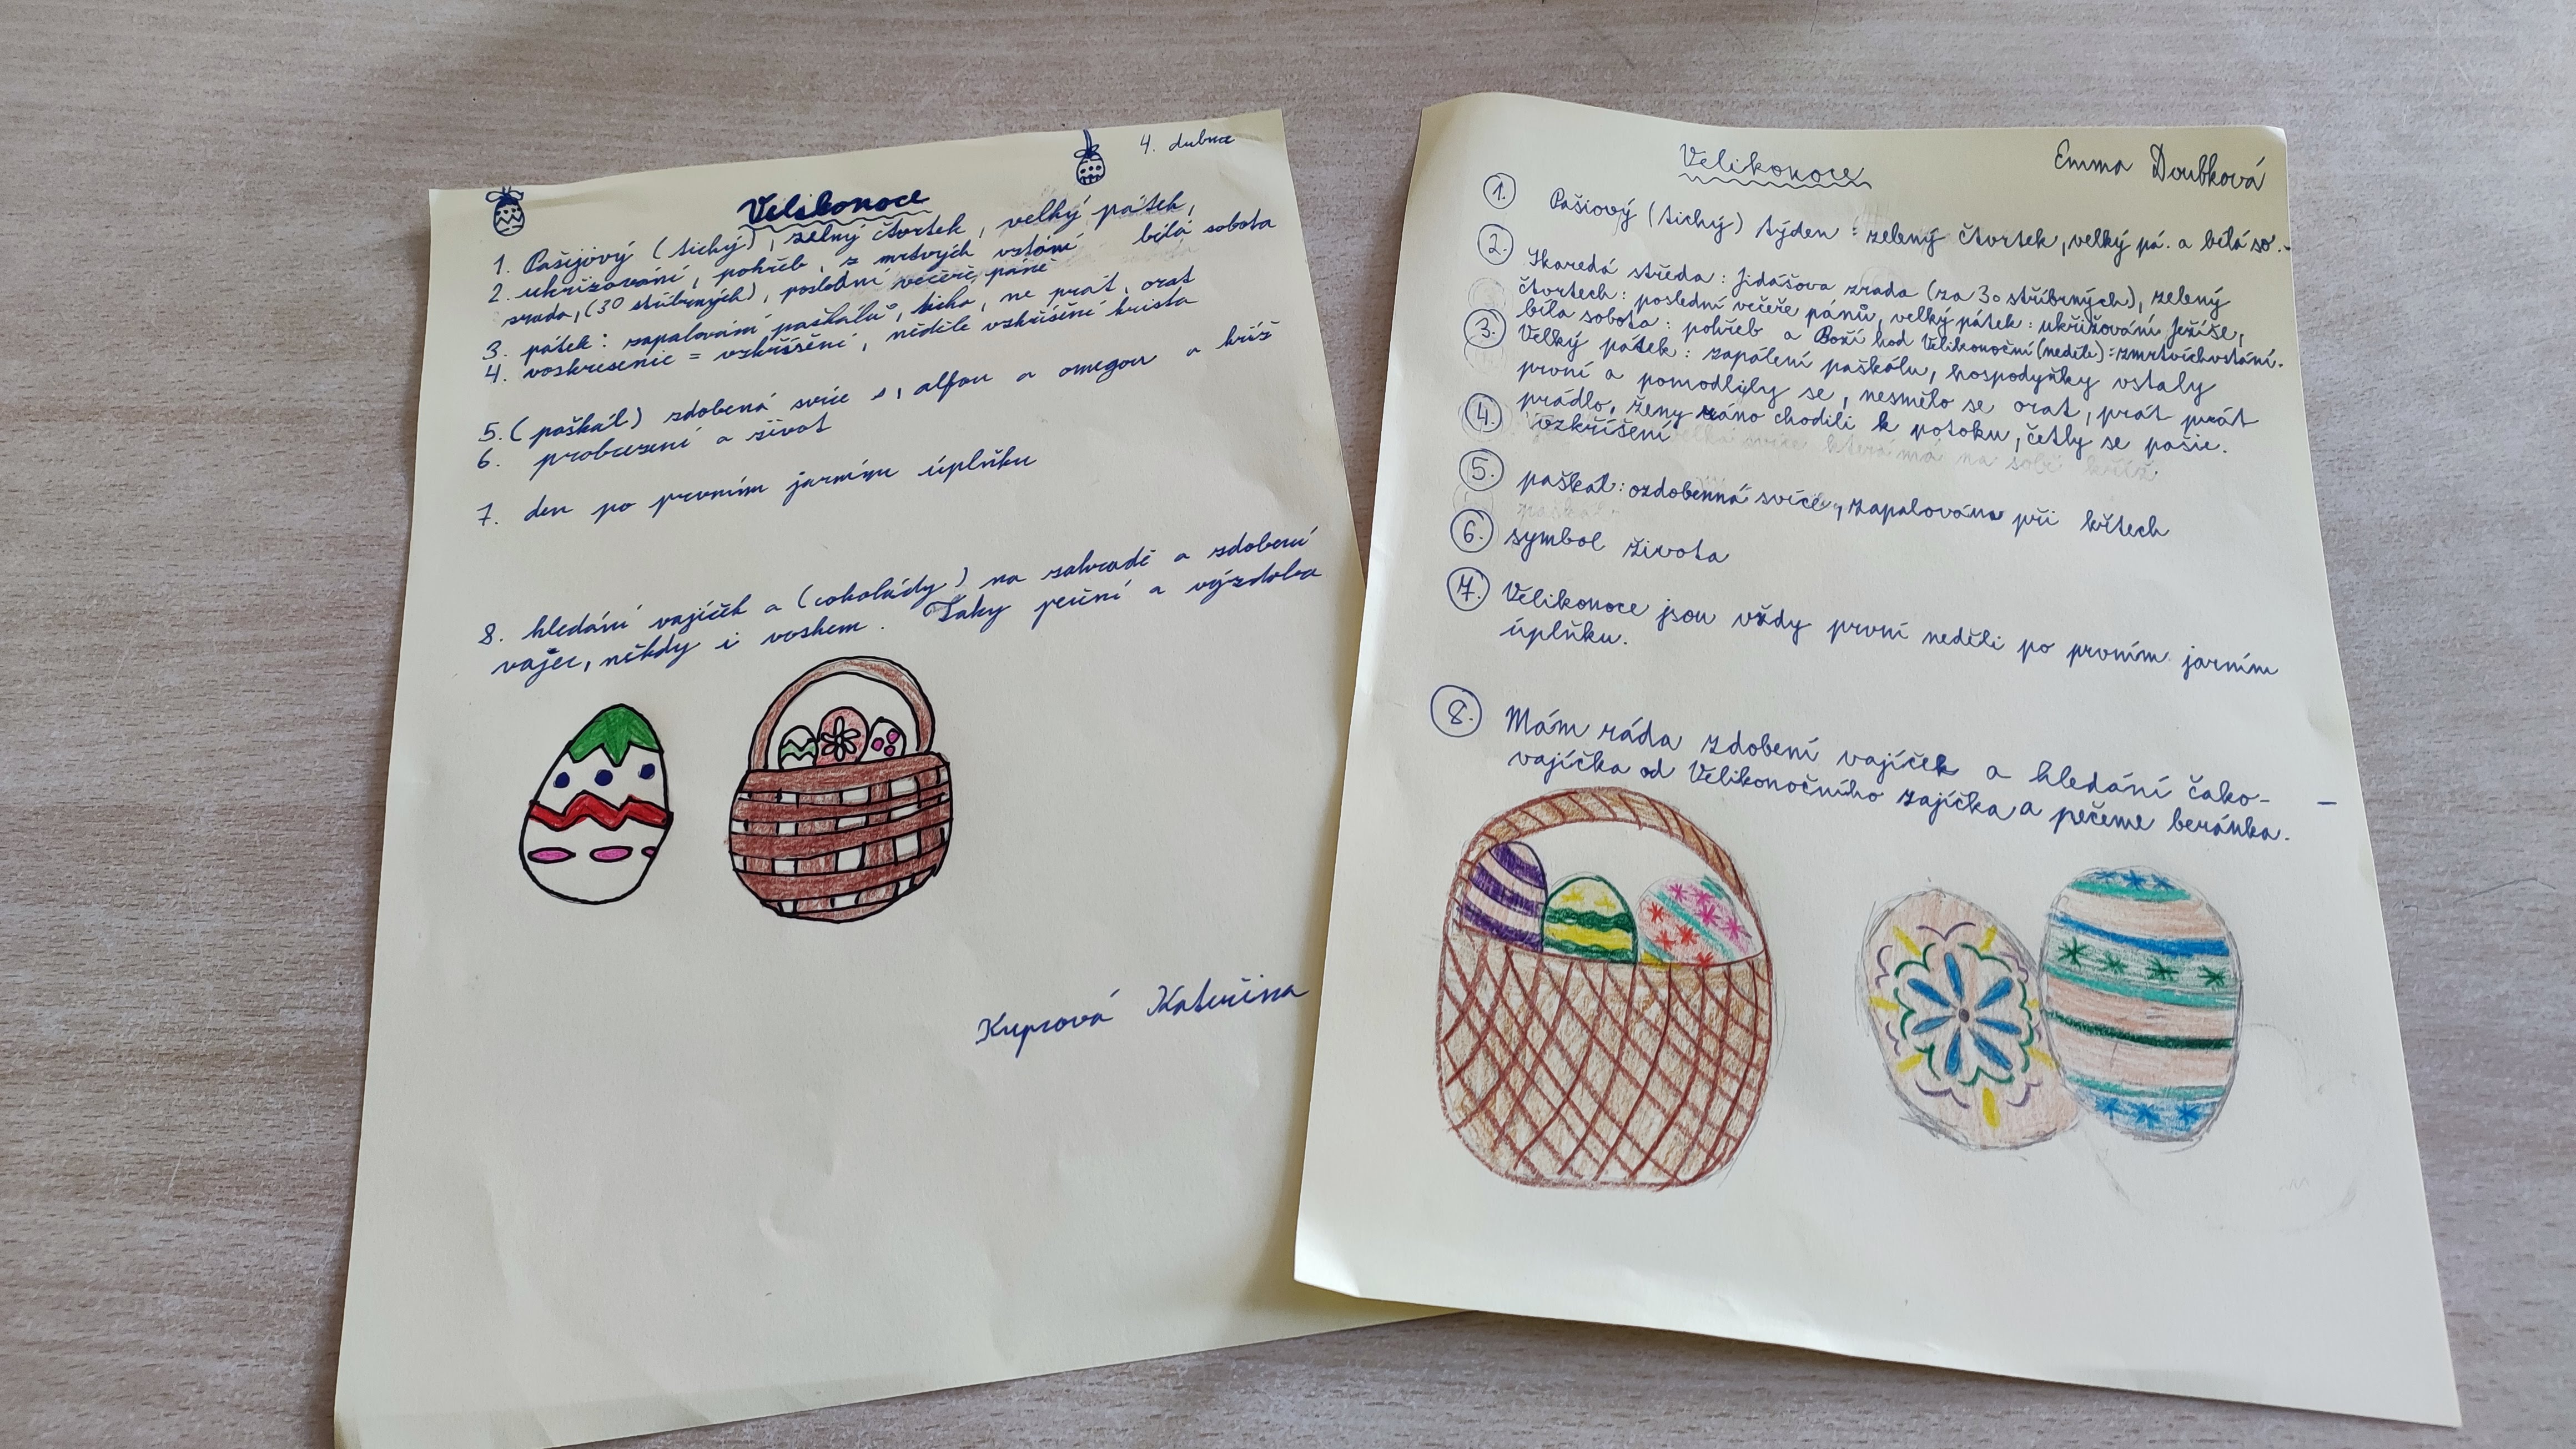 4. dubna
Velikonoce
1. Pašijový (tichý), zelný čtvrtek, velký pátek, bílá sobota
2. ukřižování, pohřeb, z mrtvých vstání
zrada, (30 stříbrných), poslední večeře páně
3. pátek: zapalování paškálů, ticho, ne prát, orat
4. voskresenie = vzkříšení, neděle vzkříšení krista
5. (paškál) zdobená svíce s, alfou a omegou a kříž
6. probuzení a život
7. den po prvním jarním úplňku
8. hledání vajíček a (čokolády) na zahradě a zdobení
vajec, někdy i voskem. Taky pečení a výzdoba
Kuprová Kateřina
Velikonoce
Emma Doubková
1. Pašiový (tichý) týden: zelený čtvrtek, velký pá. a bílá so.
2. Škaredá středa: Jidášova zrada (za 30 stříbrných), zelený
čtvrtech: poslední večeře pánů, velký pátek: ukřižování Ježíše,
bíla sobota: pohřeb a Boží hod Velikonoční (neděle): zmrtvíchvstání.
3. Velký pátek: zapálení paškálu, hospodyňky vstaly
první a pomodlily se, nesmělo se orat, prát prát
prádlo, ženy ráno chodili k potoku, četly se pašie.
4. vzkříšení
5. paškal: ozdobenná svíce, zapalována při křtech
6. symbol života
7. Velikonoce jsou vždy první neděli po prvním jarním
úplňku.
8. Mám ráda zdobení vajíček a hledání čako-
vajíčka od Velikonočního zajíčka a pečeme beránka.